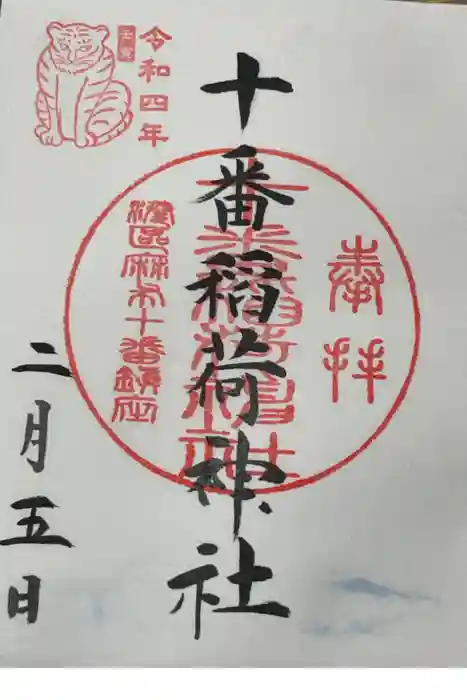 奉拝
十番稲荷神社
港区麻布十番鎮座
令和四年
壬寅
二月五日